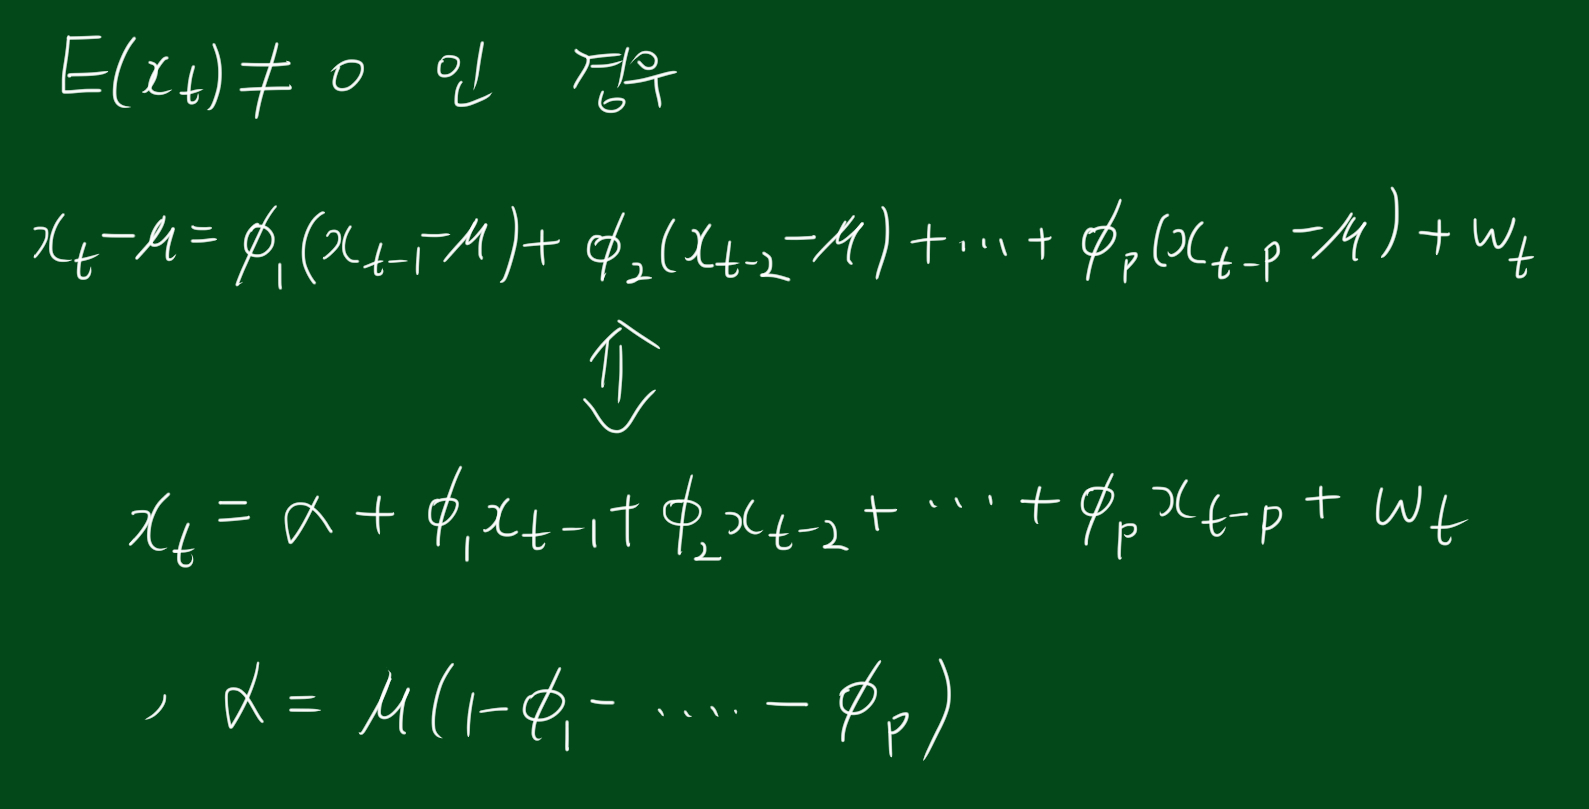 E(x_t) ≠ 0 인 경우
x_t - μ = ϕ_1(x_{t-1} - μ) + ϕ_2(x_{t-2} - μ) + ... + ϕ_p(x_{t-p} - μ) + w_t
⇕
x_t = α + ϕ_1 x_{t-1} + ϕ_2 x_{t-2} + ... + ϕ_p x_{t-p} + w_t
, α = μ(1 - ϕ_1 - ..... - ϕ_p)